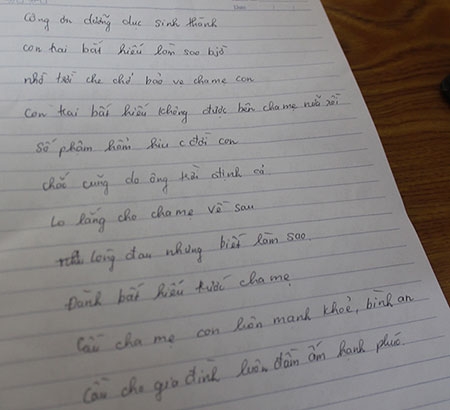 Công ơn dưỡng dục sinh thành
con trai bất hiếu làm sao bjờ
nhờ trời che chở bảo vệ cha mẹ con
Con trai bất hiếu không được bên cha mẹ nữa rồi
Số phậm hẩm hiu c đời con
chắc cũng do ông trời định cả.
Lo lắng cho cha mẹ về sau
lòng đau nhưng biết làm sao.
Đành bất hiếu trước cha mẹ
Cầu cha mẹ con luôn mạnh khoẻ, bình an
Cầu cho gia đình luôn đầm ấm hạnh phúc.